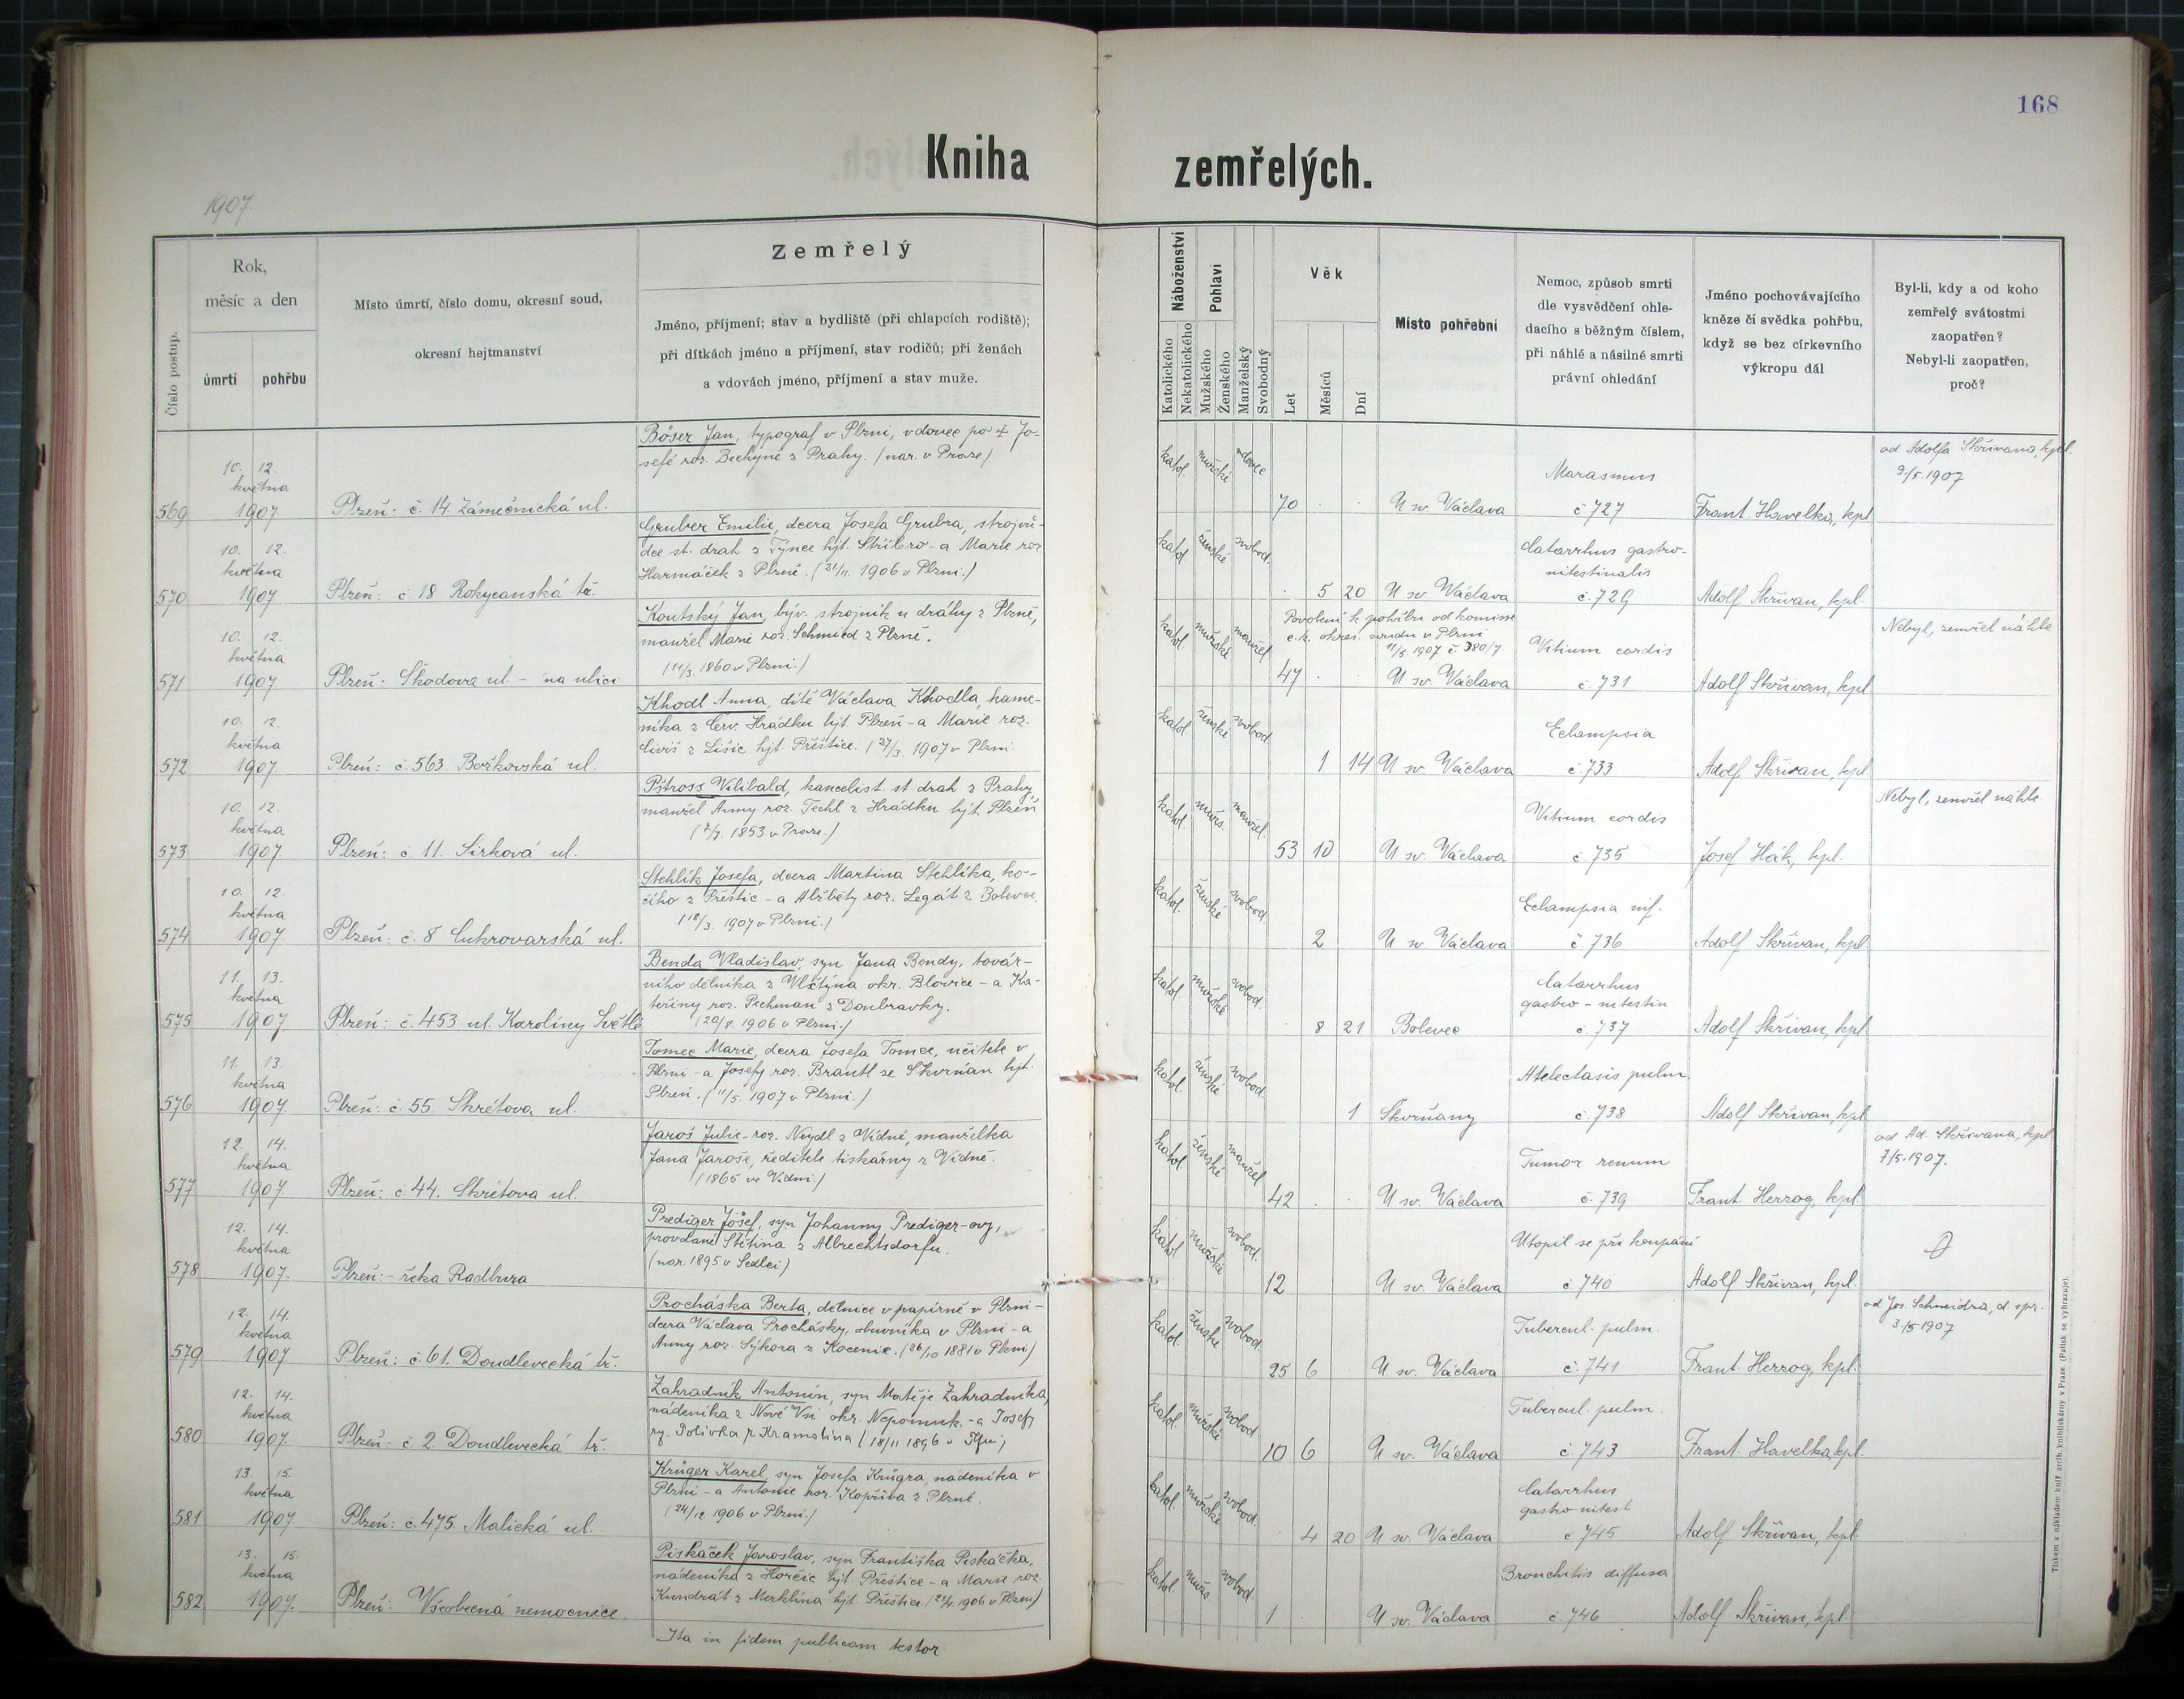 168
Kniha zemřelých.
1907.
Číslo postup.
Rok,
měsíc a den
úmrtí
pohřbu
Místo úmrtí, číslo domu, okresní soud,
okresní hejtmanství
Zemřelý
Jméno, příjmení; stav a bydliště (při chlapcích rodiště);
při dítkách jméno a příjmení, stav rodičů; při ženách
a vdovách jméno, příjmení a stav muže.
Náboženství
Katolického
Nekatolického
Pohlaví
Mužského
Ženského
Manželský
Svobodný
Věk
Let
Měsíců
Dní
Místo pohřební
Nemoc, způsob smrti
dle vysvědčení ohle-
dacího s běžným číslem,
při náhlé a násilné smrti
právní ohledání
Jméno pochovávajícího
kněze či svědka pohřbu,
když se bez církevního
výkropu dál
Byl-li, kdy a od koho
zemřelý svátostmi
zaopatřen?
Nebyl-li zaopatřen,
proč?
569
10. 12.
května
1907
Plzeň: č. 14 Zámečnická ul.
Böser Jan, typograf v Plzni, vdovec po ‡ Jo-
sefě roz. Bechyně z Prahy. (nar. v Praze)
katol. mužské vdovec
70 U sv. Václava
Marasmus
č. 727
Frant. Havelka, kpl
od Adolfa Skřivana, kpl.
9./5. 1907
570
10. 12.
května
1907
Plzeň: č. 18 Rokycanská tř.
Gruber Emilie, dcera Josefa Grubra, strojvů-
dce st. drah z Týnce hjt. Stříbro - a Marie roz
Harmáček z Plzně. (21/11. 1906 v Plzni.)
katol. ženské svobod.
5 20 U sv. Václava
Catarrhus gastro-
intestinalis
č. 729
Adolf Skřivan, kpl.
571
10. 12.
května
1907
Plzeň: Škodova ul. - na ulici
Koutský Jan, býv. strojník u dráhy z Plzně,
manžel Marie roz. Schmied z Plzně.
(11/3. 1860 v Plzni.)
katol. mužské manžel
Povolení k pohřbu od komisse
c. k. okres. soudu v Plzni
11/5. 1907 č. 380/7
47 U sv. Václava
Vitium cordis
č. 731
Adolf Skřivan, kpl
Nebyl, zemřel náhle
572
10. 12.
května
1907
Plzeň: č. 563. Božkovská ul.
Khodl Anna, dítě Václava Khodla, kame-
níka z Červ. Hrádku hjt. Plzeň - a Marie roz.
Civiš z Lišic hjt Přeštice. (27/3. 1907 v Plzni.
katol. ženské svobod.
1 14 U sv. Václava
Eclampsia
č. 733
Adolf Skřivan, kpl
573
10. 12.
května
1907.
Plzeň: č. 11. Sirková ul.
Pštross Vilibald, kancelist. st. drah z Prahy,
manžel Anny roz. Techl z Hrádku hjt. Plzeň
(7/7. 1853 v Praze.)
katol. mužs. manžel.
53 10 U sv. Václava
Vitium cordis
č. 735
Josef Hák, kpl.
Nebyl, zemřel náhle.
574
10. 12.
května
1907.
Plzeň: č. 8 Cukrovarská ul.
Stehlík Josefa, dcera Martina Stehlíka, ko-
čího z Přeštic - a Alžběty roz. Legát z Bolevce.
(18/3. 1907 v Plzni.)
katol. ženské svobod.
2 U sv. Václava
Eclampsia inf.
č. 736
Adolf Skřivan, kpl.
575
11. 13.
května
1907
Plzeň: č. 453 ul. Karolíny Světlé
Benda Vladislav, syn Jana Bendy, továr-
ního dělníka z Vlčtýna okr. Blovice - a Ka-
teřiny roz. Pechman z Doubravky.
(20/8. 1906 v Plzni.)
katol. mužské svobod.
8 21 Bolevec
Catarrhus
gastro-intestin
č. 737
Adolf Skřivan, kpl
576
11. 13.
května
1907.
Plzeň: č. 55. Skrétova ul.
Tomec Marie, dcera Josefa Tomce, učitele v
Plzni - a Josefy roz. Brantl ze Skvrňan hjt.
Plzeň. (11/5. 1907 v Plzni.)
katol. ženské svobod.
1 Skvrňany
Atelectasis pulm
č. 738
Adolf Skřivan, kpl
577
12. 14.
května
1907.
Plzeň: č. 44. Skrétova ul.
Jaroš Julie - roz. Neydl z Vídně, manželka
Jana Jaroše, ředitele tiskárny z Vídně.
(1865 ve Vídni.)
katol. ženské manžel
42 U sv. Václava
Tumor renum
č. 739
Frant. Herzog, kpl.
od Ad. Skřivana, kpl
7/5. 1907.
578
12. 14.
května
1907.
Plzeň: - řeka Radbuza
Prediger Josef, syn Johanny Prediger-ovy,
provdané Štětina z Albrechtsdorfu.
(nar. 1895 v Sedlci)
katol. mužské svobod.
12 U sv. Václava
Utopil se při koupání
č. 740
Adolf Skřivan, kpl.
579
12. 14.
května
1907
Plzeň: č. 61. Doudlevecká tř.
Procháska Berta, dělnice v papírně v Plzni -
dcera Václava Procházky, obuvníka v Plzni - a
Anny roz. Sýkora z Kocenic. (26/10 1881 v Plzni)
katol. ženské svobod.
25 6 U sv. Václava
Tubercul. pulm.
č. 741
Frant. Herzog, kpl.
od Jos. Schneidra, d. spr.
3./5 1907
580
12. 14.
května
1907.
Plzeň: č. 2 Doudlevecká tř.
Zahradník Antonín, syn Matěje Zahradníka,
nádeníka z Nové Vsi okr. Nepomuk. - a Josefy
roz. Polívka z Kramolína (18/11 1896 v Plzni)
katol. mužské svobod
10 6 U sv. Václava
Tubercul. pulm.
č. 743
Frant. Havelka, kpl.
581
13. 15.
května
1907
Plzeň: č. 475. Malická ul.
Krüger Karel, syn Josefa Krügra, nádeníka v
Plzni - a Antonie roz. Kopřiva z Plzně.
(24/12 1906 v Plzni.)
katol. mužské svobod.
4 20 U sv. Václava
Catarrhus
gastro-intest
č. 745
Adolf Skřivan, kpl
582
13. 15.
května
1907.
Plzeň: Všeobecná nemocnice
Piskáček Jaroslav, syn Františka Piskáčka,
nádeníka z Horčic hjt. Přeštice - a Marie roz.
Kundrát z Merklína hjt. Přeštice. (24/4. 1906 v Plzni)
katol. mužs. svobod.
1 U sv. Václava
Bronchitis diffusa
č. 746
Adolf Skřivan, kpl.
Ita in fidem publicam testor
Tiskem a nákladem kníž. arcib. knihtiskárny v Praze. (Patisk se vyhrazuje).